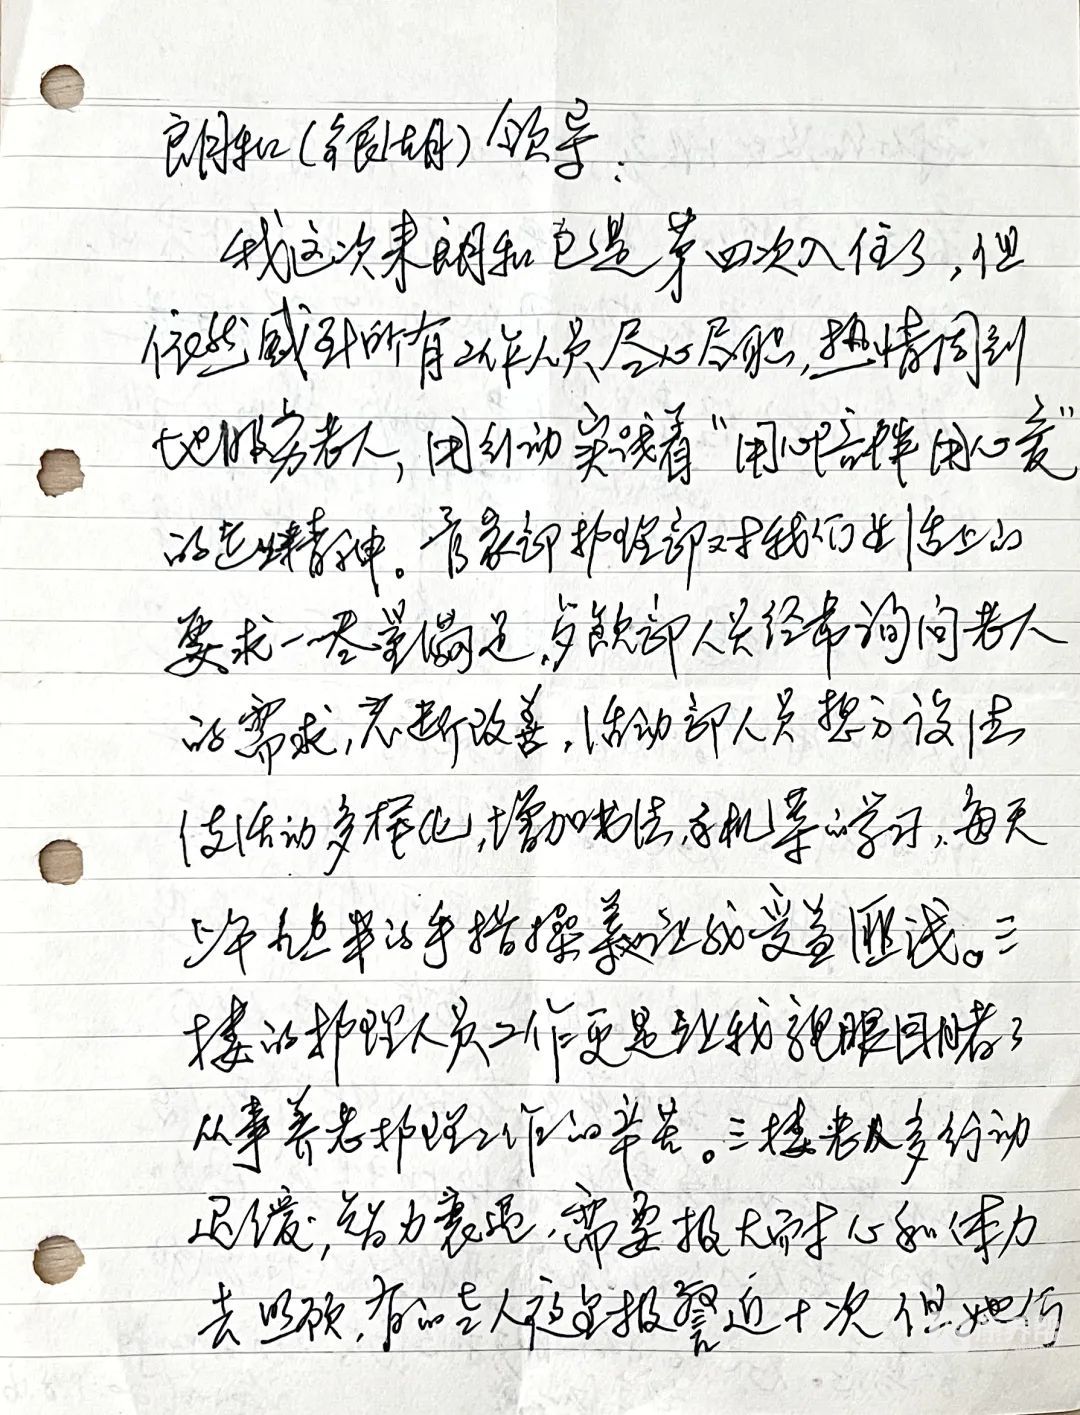 朗和(银湖)领导:
我这次来朗和已是第四次入住了,但
依然感到所有工作人员尽心尽职,热情周到
地服务老人,用行动实践着“用心陪伴用心爱”
的企业精神。管家部护理部对我们生活上的
要求一尽量满足,餐饮部人员经常询问老人
的需求,不断改善,活动部人员想方设法
使活动多样化,增加书法、手机等的学习,每天
上午九点半的手指操美让我受益匪浅。三
楼的护理人员工作更是让我亲眼目睹了
从事养老护理工作的辛苦。三楼老人多行动
迟缓,智力衰退,需要极大耐心和体力
去照顾,有的老人夜里报警近十次但她们